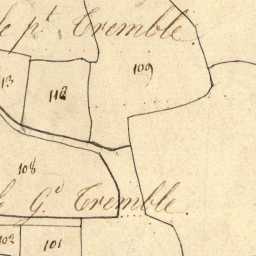 le p.t Tremble
109
113
112
108
le G.d Tremble
102
101